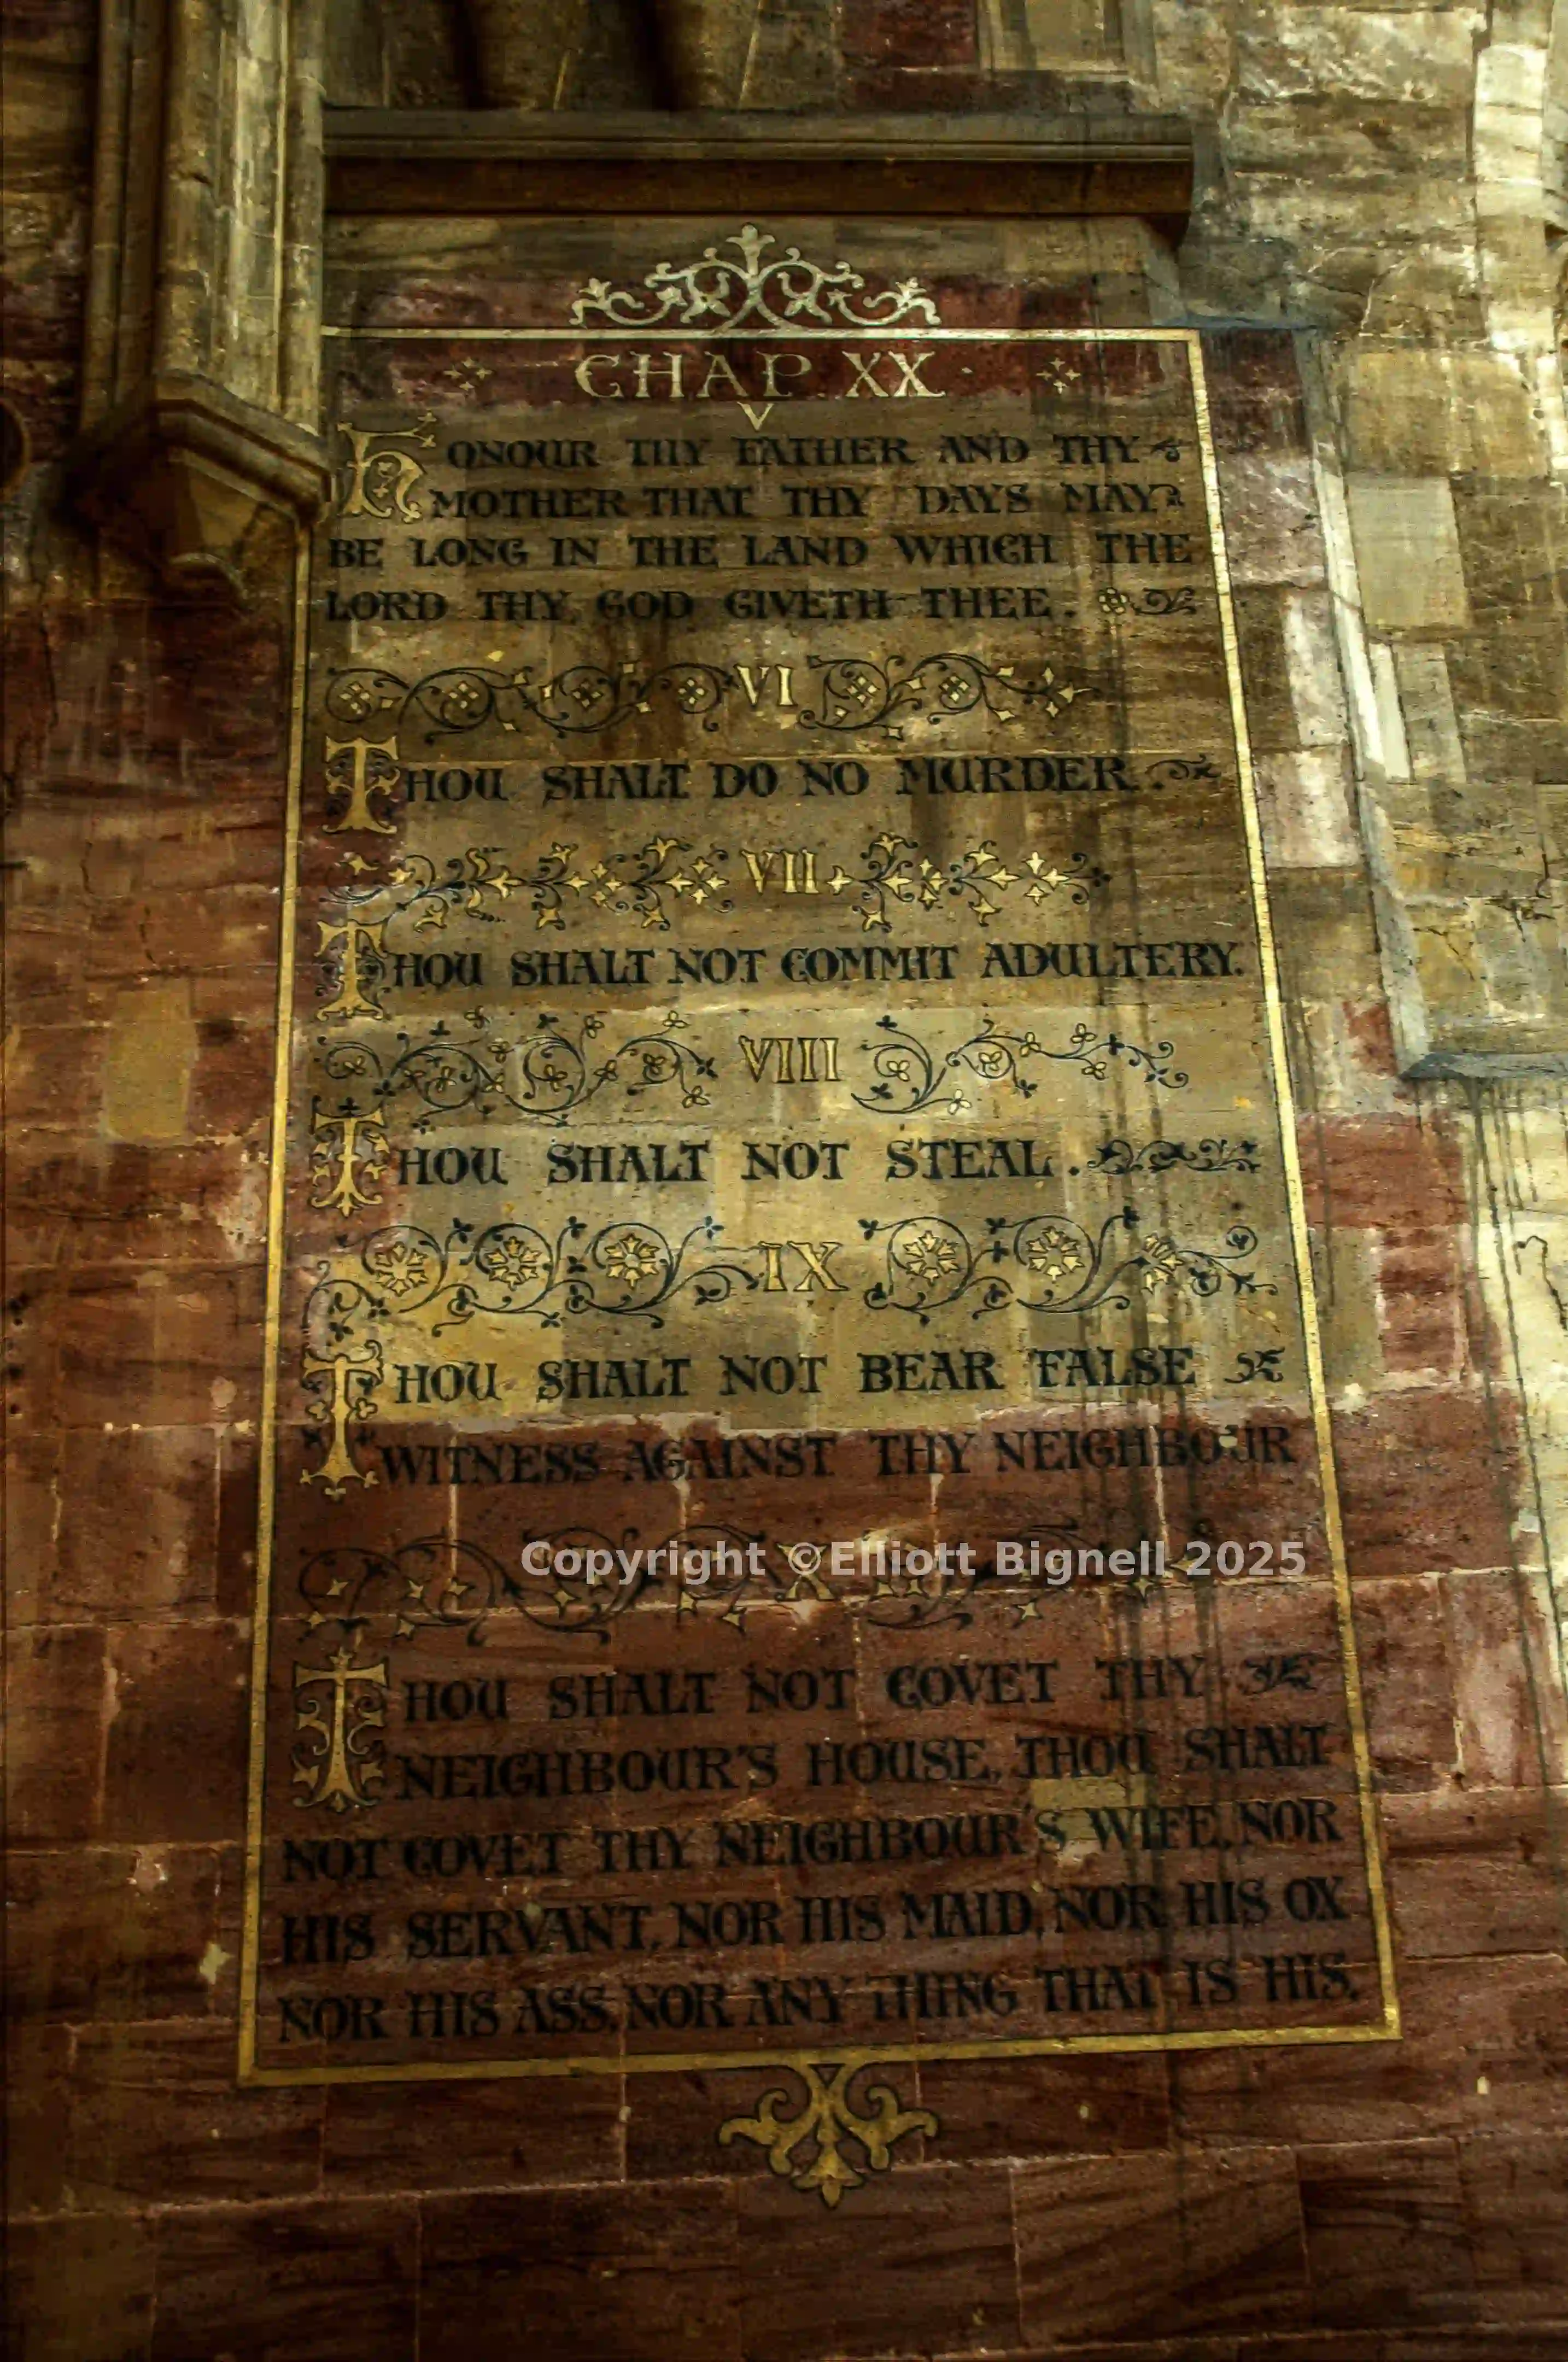 CHAP. XX
V
HONOUR THY FATHER AND THY
MOTHER THAT THY DAYS MAY
BE LONG IN THE LAND WHICH THE
LORD THY GOD GIVETH THEE.
VI
THOU SHALT DO NO MURDER.
VII
THOU SHALT NOT COMMIT ADULTERY.
VIII
THOU SHALT NOT STEAL.
IX
THOU SHALT NOT BEAR FALSE
WITNESS AGAINST THY NEIGHBOUR
X
Copyright ©Elliott Bignell 2025
THOU SHALT NOT COVET THY
NEIGHBOUR'S HOUSE, THOU SHALT
NOT COVET THY NEIGHBOUR'S WIFE, NOR
HIS SERVANT, NOR HIS MAID, NOR HIS OX
NOR HIS ASS, NOR ANY THING THAT IS HIS.